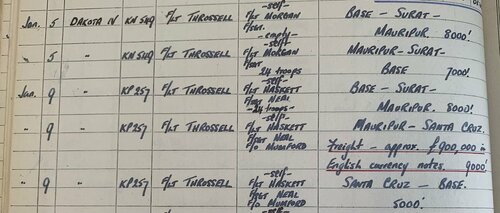 -self-
Jan. 5 DAKOTA IV KN 549 F/LT THROSSELL F/LT MORGAN BASE - SURAT -
F/SGT. -empty- MAURIPUR 8000'.
-self-
" 5 KN 549 F/LT THROSSELL F/LT MORGAN MAURIPUR-SURAT-
F/SGT
24 troops BASE 7000'.
-self-
Jan. 9 KP257 F/LT THROSSELL F/LT HASKETT BASE - SURAT -
F/SGT NEAL
-24 troops- MAURIPUR. 8000'.
-self-
" 9 KP257 F/LT THROSSELL F/LT HASKETT MAURIPUR - SANTA CRUZ
F/SGT NEAL
F/O MUMFORD Freight - approx. £900,000 in
English currency notes. 9000'
-self-
" 9 KP257 F/LT THROSSELL F/LT HASKETT SANTA CRUZ - BASE.
F/SGT NEAL
F/O MUMFORD 5000'.
-self-